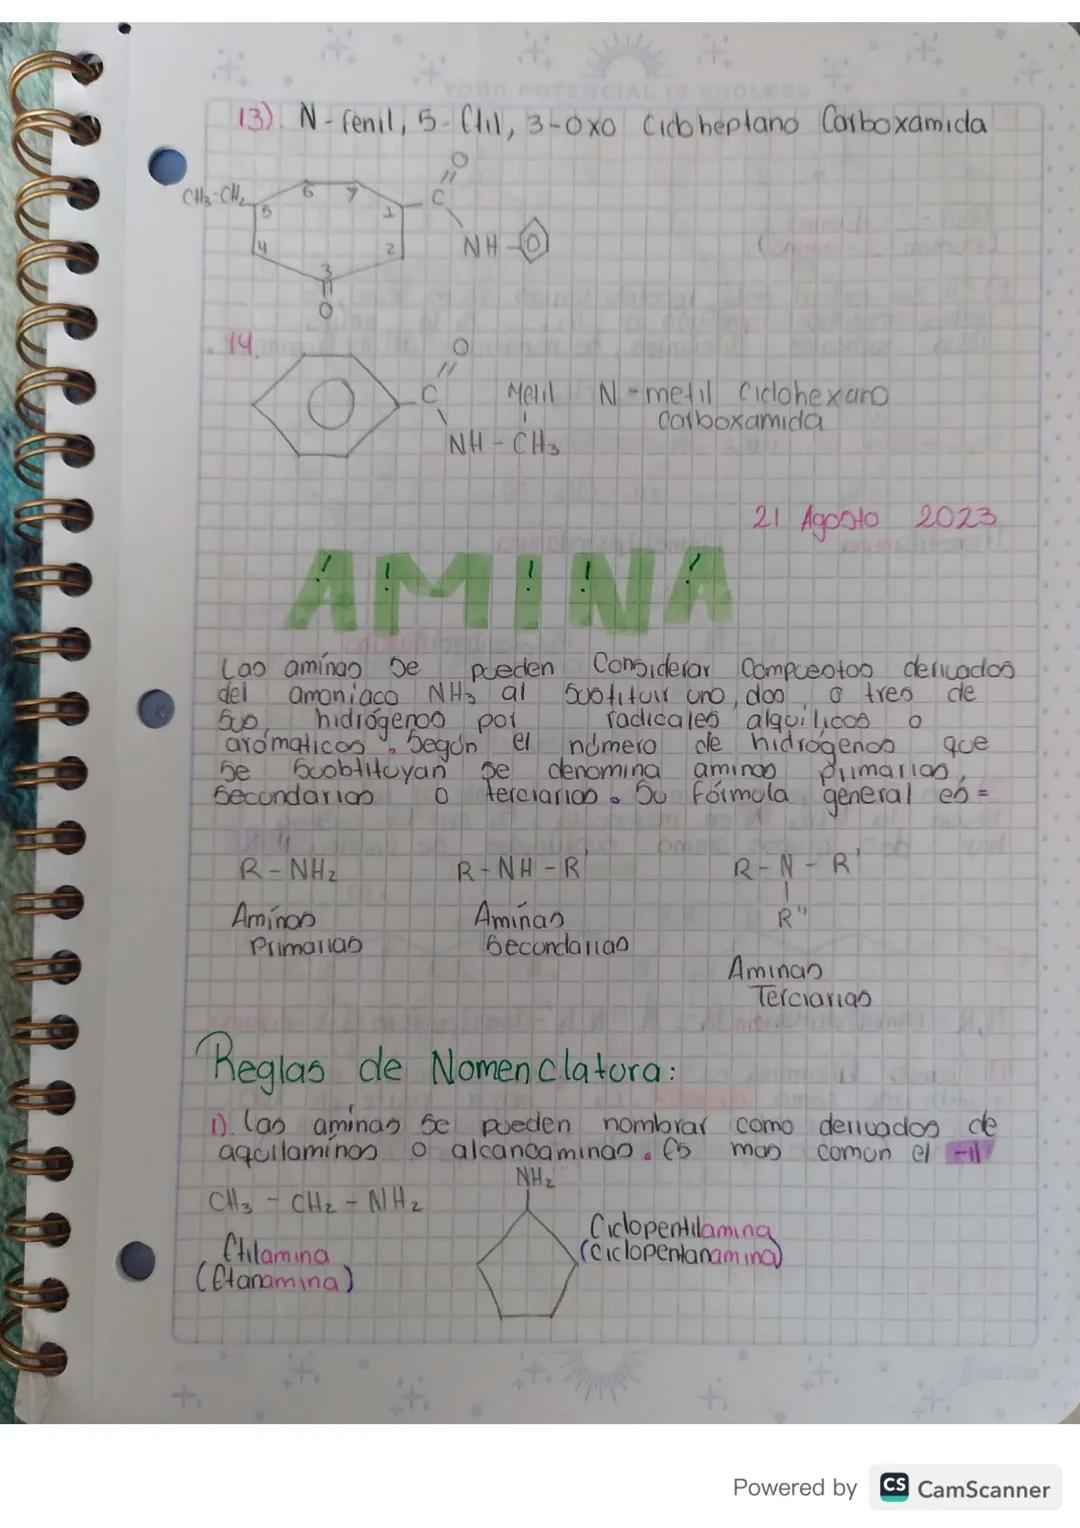 YOUR POTENCIAL IS ENDLESS
13). N-fenil, 5-Etil, 3-oxo Cicloheptano Carboxamida
O
CH3-CH2 6 7 C
5 1
4 2 NH
3
O
14. O
C Metil N-metil Ciclohexano
Carboxamida
NH-CH3
21 Agosto 2023
AMINA
Las aminas se pueden Considerar Compuestos derivados
del amoniaco NH3 al sustituir uno, dos o tres de
sus hidrógenos por radicales alquilicos o
aromaticos. Según el número de hidrógenos que
se sustituyan se denomina aminas primarias,
secundarias o terciarias. Su fórmula general es=
R-NH2 R-NH-R' R-N-R'
R"
Aminas Aminas
Primarias Secundarias
Aminas
Terciarias
Reglas de Nomenclatura:
1). Las aminas se pueden nombrar como derivados de
aquilaminas o alcanoaminas. Es mas comun el -il
NH2
CH3-CH2-NH2
Ciclopentilamina
Etilamina (Ciclopentanamina)
(Etanamina)
Powered by CS CamScanner